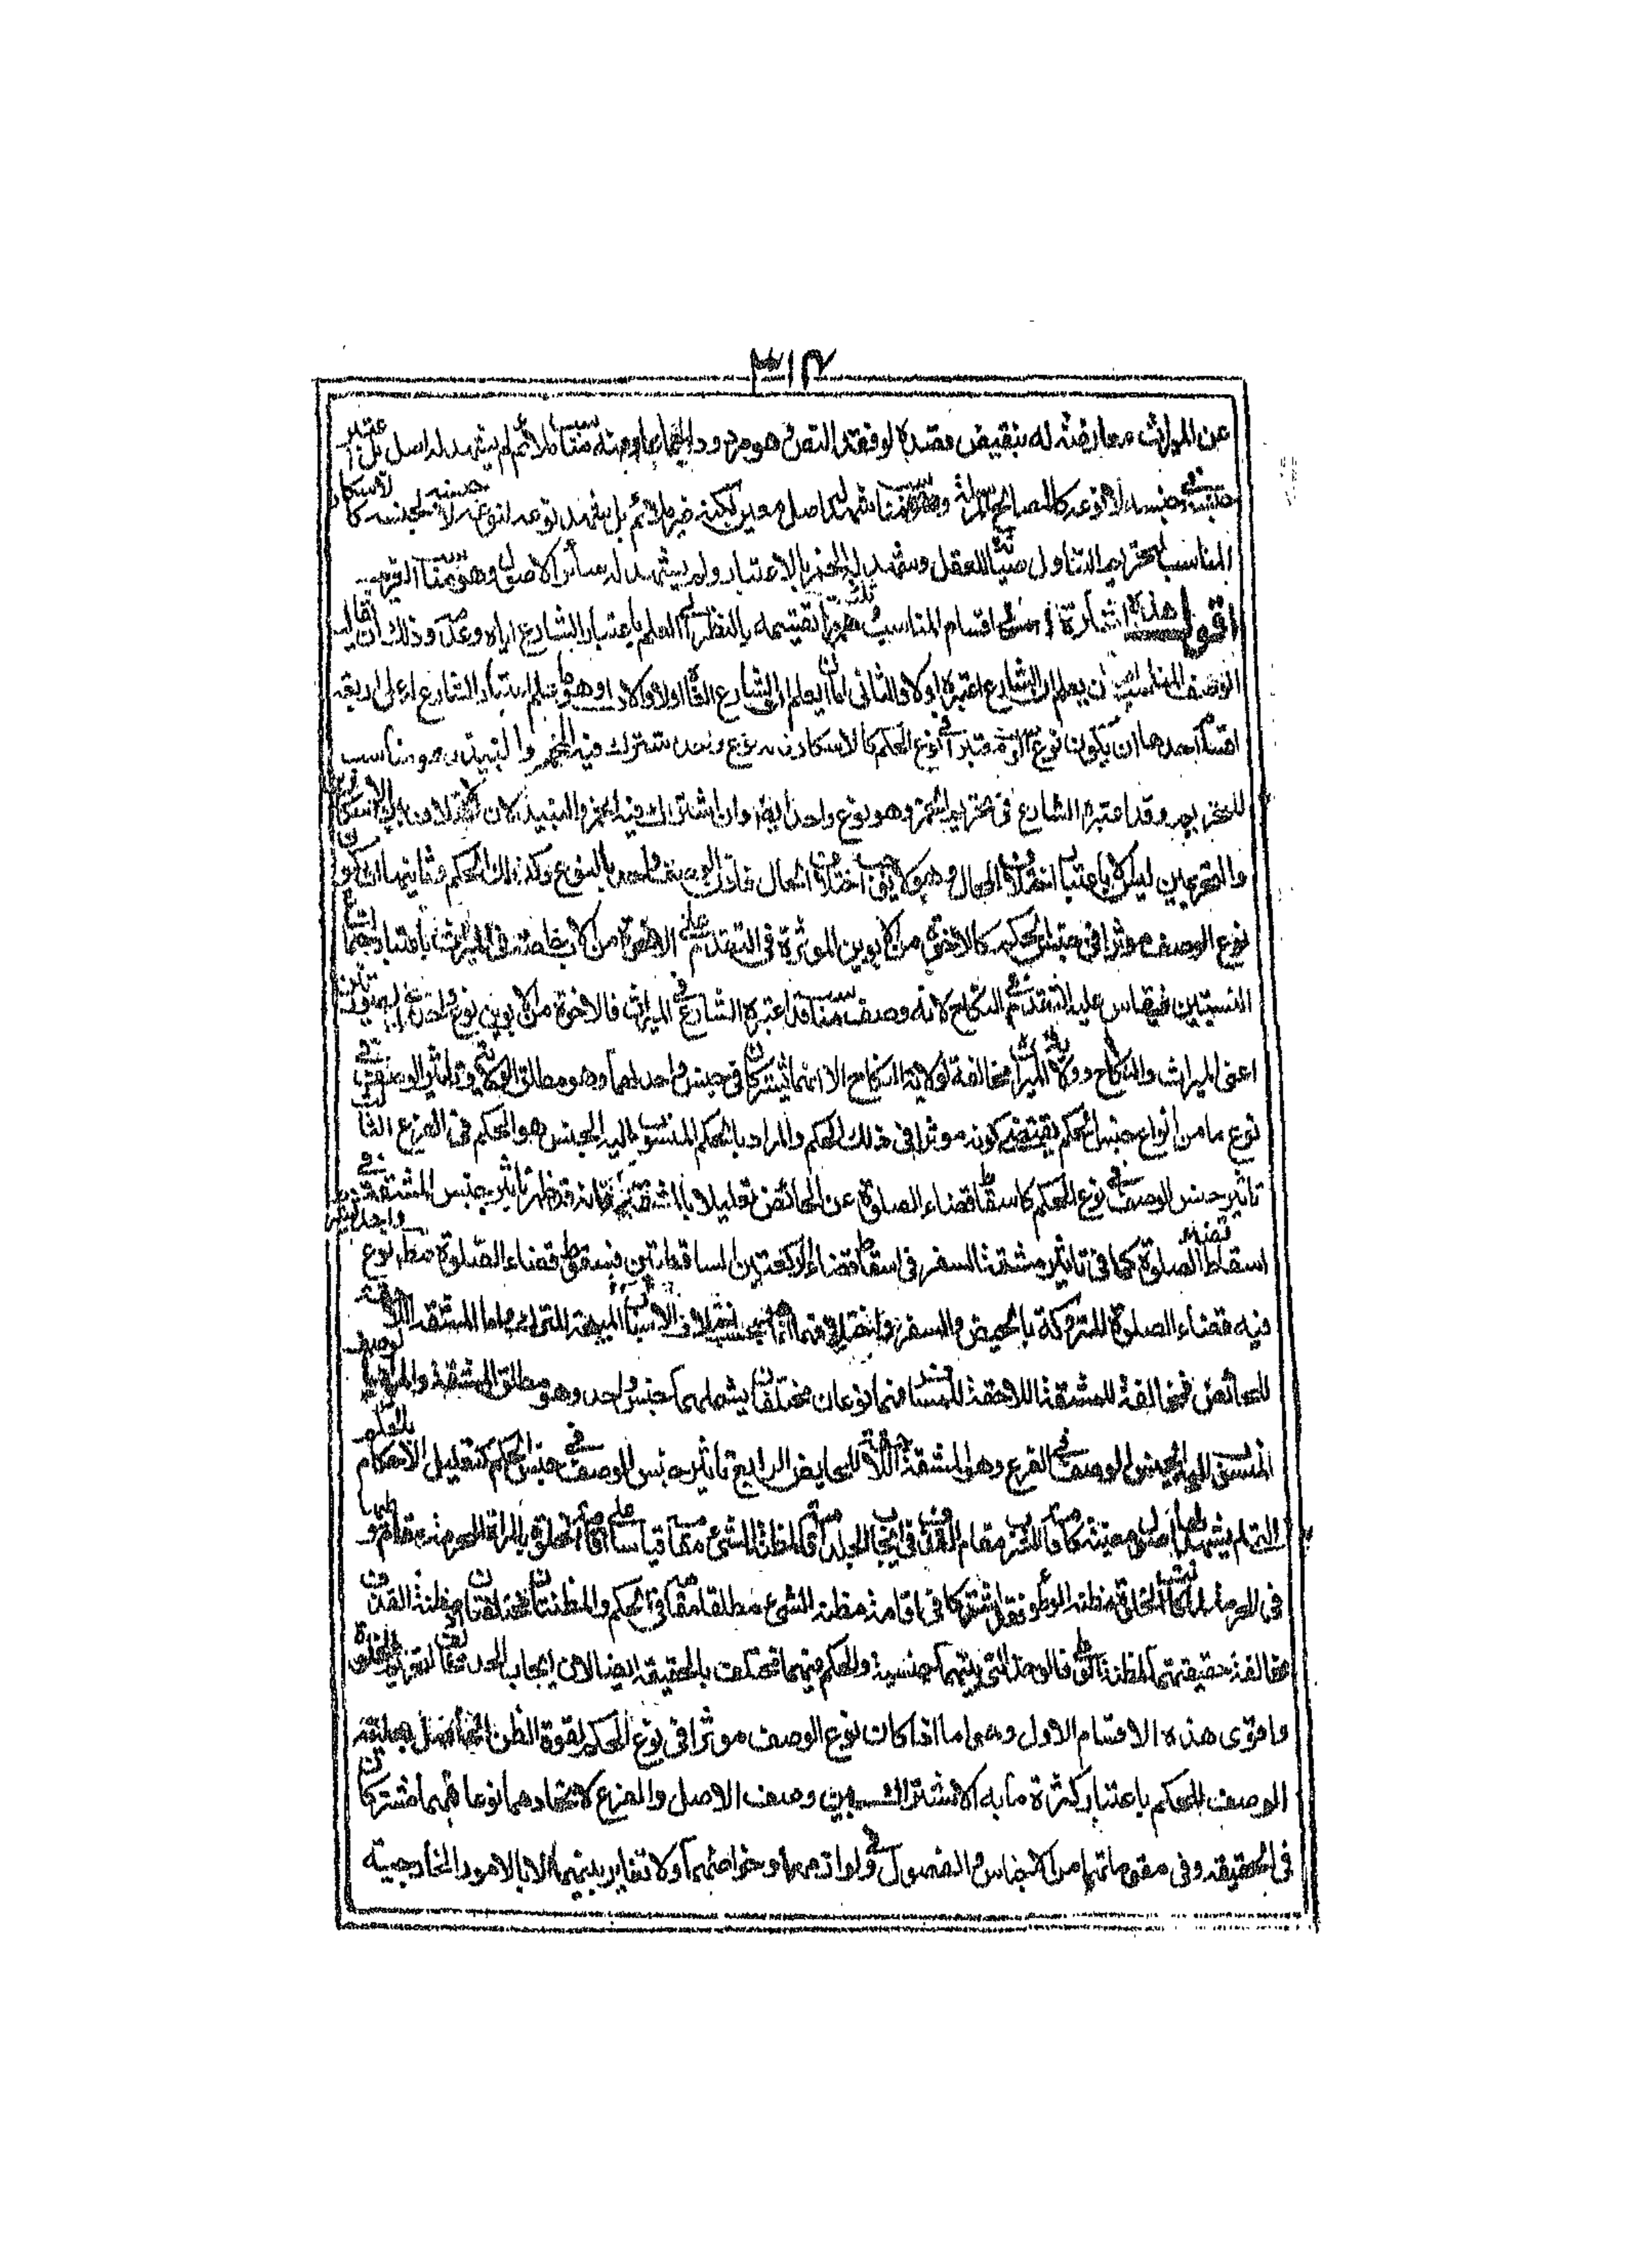 ٣١٢
عن الميراث معارضة له بنقيض قصده لو فقد النص هو مردود اجماعا ومنه مناسب ملائم لم يشهد له اصل بل اعتبر
جنسه في جنسه لا نوعه كالمصالح المرسلة ومنه مناسب شهد له اصل معين لكنه غير ملائم بل شهد نوعه لنوعه لا جنسه لجنسه كالاسكار
المناسب لتحريم التناول صيانة للعقل وشهد له الخمر بالاعتبار ولم يشهد له سائر الاصول وهو مناسب الغريب
اقول هذه اشارة الى اقسام المناسب تقسيمه بالنظر الى العلم باعتبار الشارع اياه وعدمه وذلك ان يقال
الوصف المناسب اما ان يعلم ان الشارع اعتبره او لا والثاني اما ان يعلم ان الشارع الغاه او لا والاول وهو ما علم اعتبار الشارع له على اربعة
اقسام احدها ان يكون نوع الوصف معتبرا في نوع الحكم كالاسكار فانه نوع واحد يشترك فيه الخمر والنبيذ وهو مناسب
للتحريم وقد اعتبره الشارع في تحريم الخمر وهو نوع واحد ايضا وان اشترك فيه الخمر والنبيذ لان الاختلاف بين الاسكارين
والتحريمين ليس الا باعتبار اختلاف المحال وهو لا يوجب اختلاف الحال فاذن الوصف متحد بالنوع وكذلك الحكم وثانيها ان يكون
نوع الوصف موثرا في جنس الحكم كالاخوة من الابوين الموثرة في التقدم على الاخوة من الاب خاصة في الميراث باعتبار اجتماع
النسبتين فيقاس عليه التقدم في النكاح لانه وصف مناسب قد اعتبره الشارع في الميراث فالاخوة من الابوين نوع واحد في الصورتين
اعني الميراث والنكاح وولاية الميراث مخالفة لولاية النكاح الا انهما يشتركان في جنس واحد لهما وهو مطلق الولاية وتاثير الوصف في
نوع ما من انواع جنس الحكم يقتضي كونه موثرا في ذلك الحكم والمراد بالحكم المنسوب اليه الجنس هو الحكم في الفرع الثالث
تاثير جنس الوصف في نوع الحكم كاسقاط قضاء الصلوة عن الحائض تعليلا بالمشقة فانه قد ظهر تاثير جنس المشقة في
اسقاط قضاء الصلوة كما في تاثير مشقة السفر في اسقاط قضاء الركعتين الساقطتين فيسقط قضاء الصلوة نوع واحد يدخل
فيه قضاء الصلوة المتروكة بالحيض والسفر واختلافهما انما هو بحسب اختلاف الاسباب المبيحة للترك واما المشقة اللاحقة
للحائض فمخالفة للمشقة اللاحقة للمسافر فهما نوعان مختلفان يشملهما جنس واحد وهو مطلق المشقة والمراد بالوصف
المنسوب اليه الجنس الوصف في الفرع وهو المشقة اللاحقة للحايض الرابع تاثير جنس الوصف في جنس الحكم كتعليل الاحكام بالحكم
التي لم يشهد لها اصول معينة كاقامة الشرب مقام القذف في ايجاب الجلد اقامة لمظنة الشئ مقامه قياسا على اقامة الخلوة بالمراة المحرمة مقام وطئها
في الحرمة لما كانت الخلوة مظنة الوطؤ فقد اشتركا في اقامة مظنة الشئ مطلقا مقامه في الحكم والمظنتان مختلفتان فمظنة القذف
مخالفة حقيقتها لمظنة الوطؤ فالوحدة التي بينهما جنسية والحكم فيهما مختلف بالحقيقة ايضا لان ايجاب الحد مخالف لتحريم الخلوة
واقوى هذه الاقسام الاول وهو ما اذا كان نوع الوصف موثرا في نوع الحكم لقوة الظن الحاصل بعلية
الوصف للحكم باعتبار كثرة ما به الاشتراك بين وصف الاصل والفرع لاتحادهما نوعا فهما مشتركان
في الحقيقة وفي مقوماتهما من الاجناس والفصول وفي لوازمهما وخواصهما ولا تغاير بينهما الا بالامور الخارجية